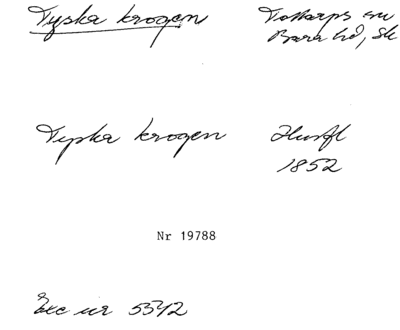 Tyska krogen Tottarps sn
Bara hd, Sk
Tyska krogen Husfl
1852
Nr 19788
Exc nr 5342